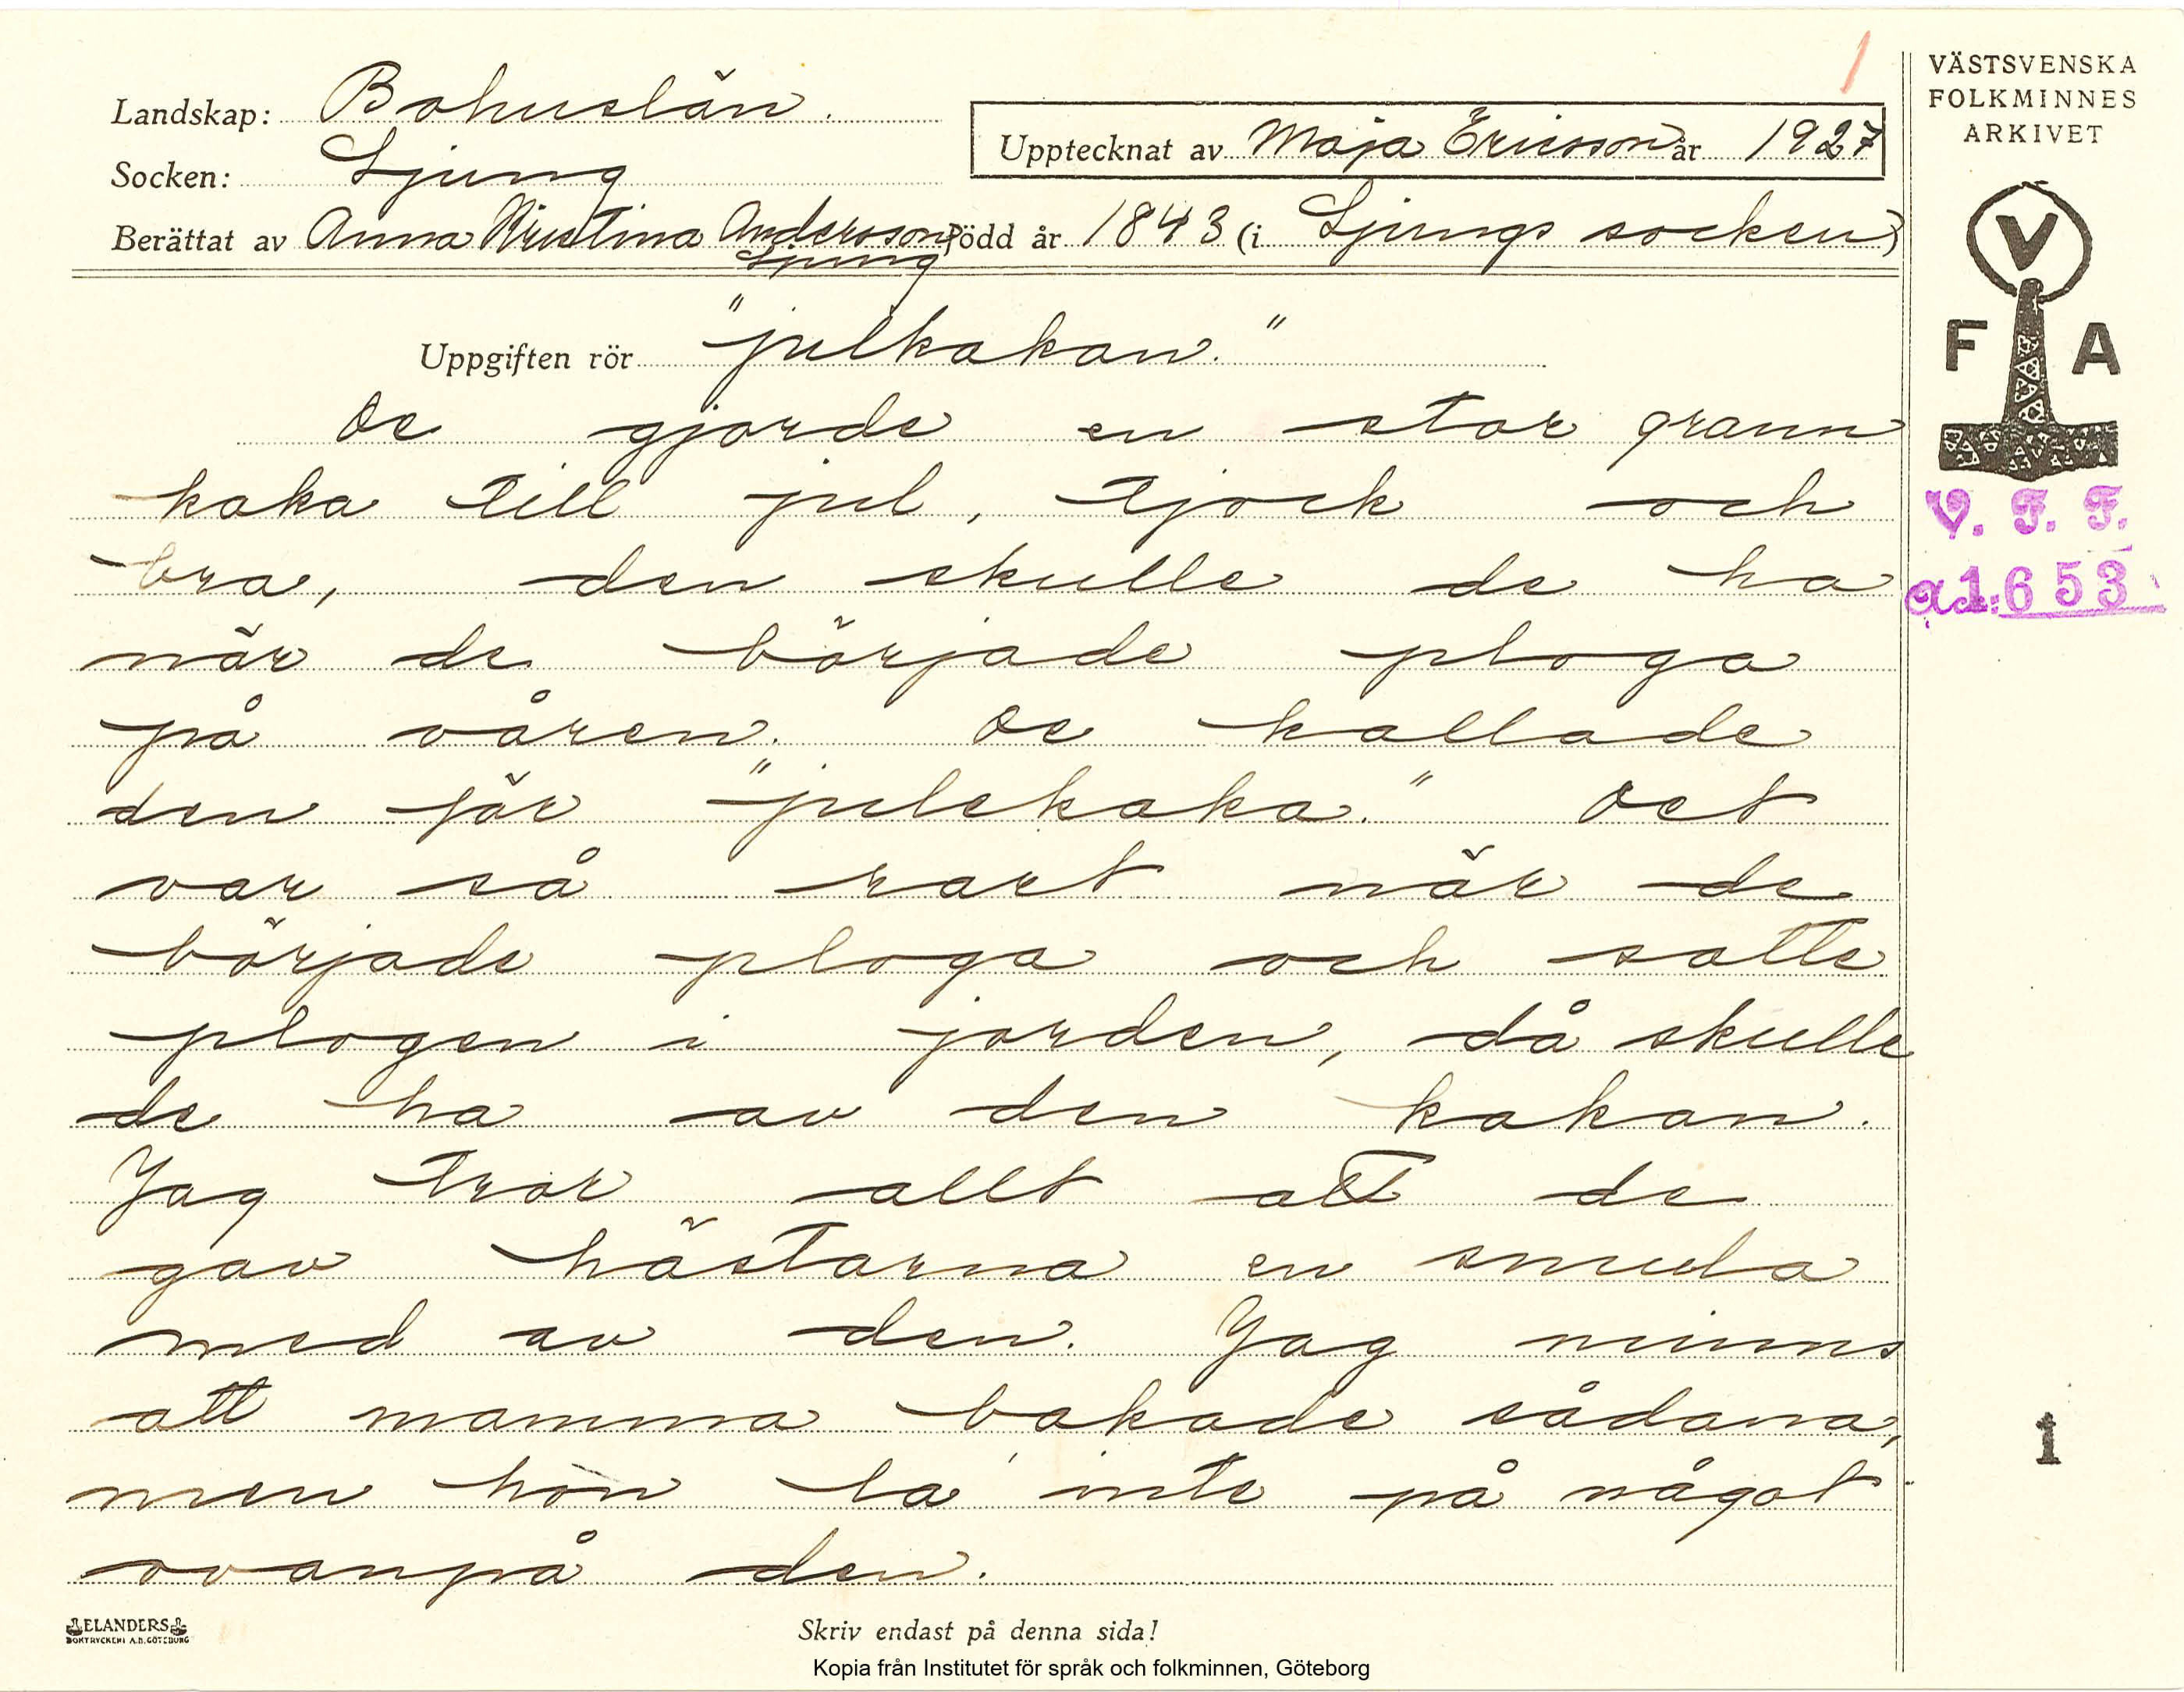 1
VÄSTSVENSKA
FOLKMINNES
ARKIVET
Landskap: Bohuslän.
Upptecknat av Maja Ericsson år 1927
Socken: Ljung
Berättat av Anna Kristina Andersson Född år 1843 (i Ljungs socken)
Ljung
V
F A
Uppgiften rör "julkakan."
De gjorde en stor grann
kaka till jul, tjock och
bra, den skulle de ha
när de började ploga
på våren. De kallade
den för "julekaka." Det
var så rart när de
började ploga och satte
plogen i jorden, då skulle
de ha av den kakan.
Jag tror allt att de
gav hästarna en smula
med av den. Jag minns
att mamma bakade sådana,
men hon la inte på något
ovanpå den.
V. F. F.
a1:653
1
ELANDERS
BOKTRYCKERI A.B. GÖTEBORG
Skriv endast på denna sida!
Kopia från Institutet för språk och folkminnen, Göteborg